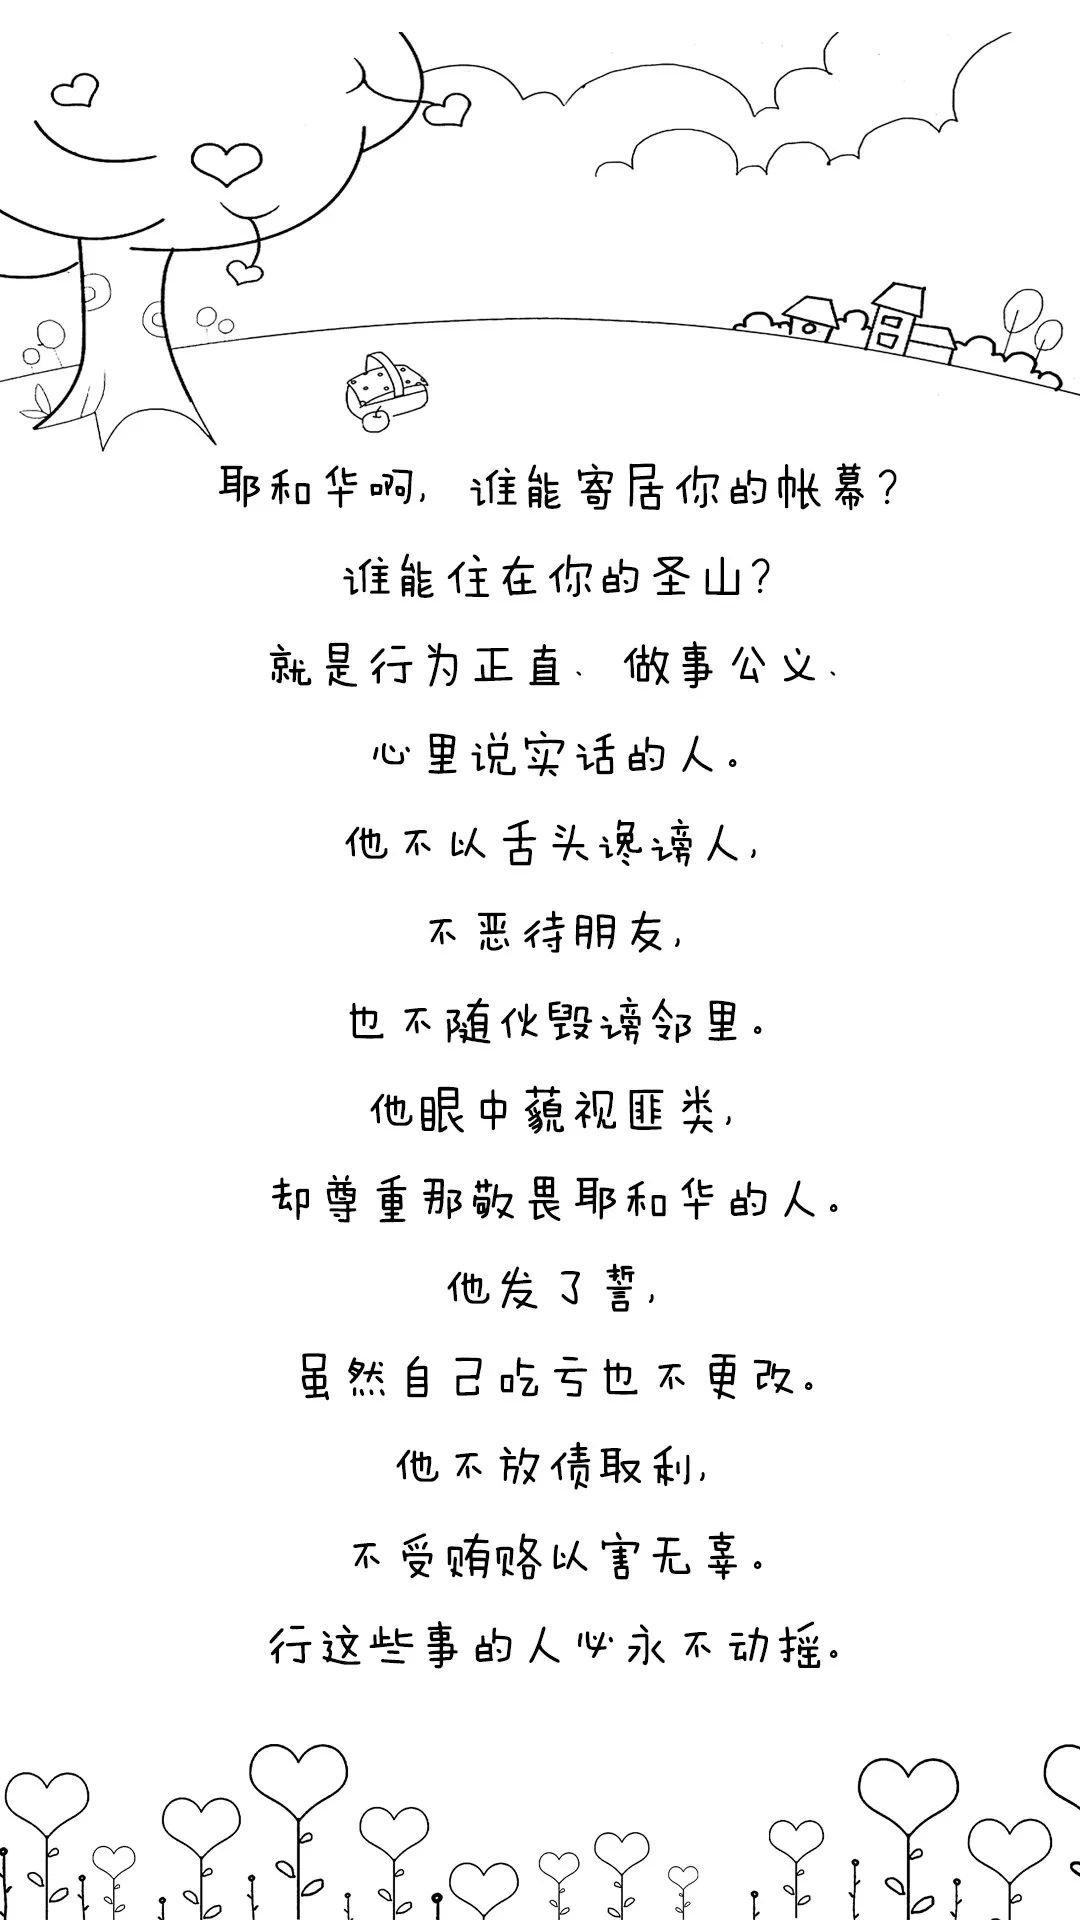 耶和华啊，谁能寄居你的帐幕？
谁能住在你的圣山？
就是行为正直、做事公义、
心里说实话的人。
他不以舌头谗谤人，
不恶待朋友，
也不随伙毁谤邻里。
他眼中藐视匪类，
却尊重那敬畏耶和华的人。
他发了誓，
虽然自己吃亏也不更改。
他不放债取利，
不受贿赂以害无辜。
行这些事的人必永不动摇。